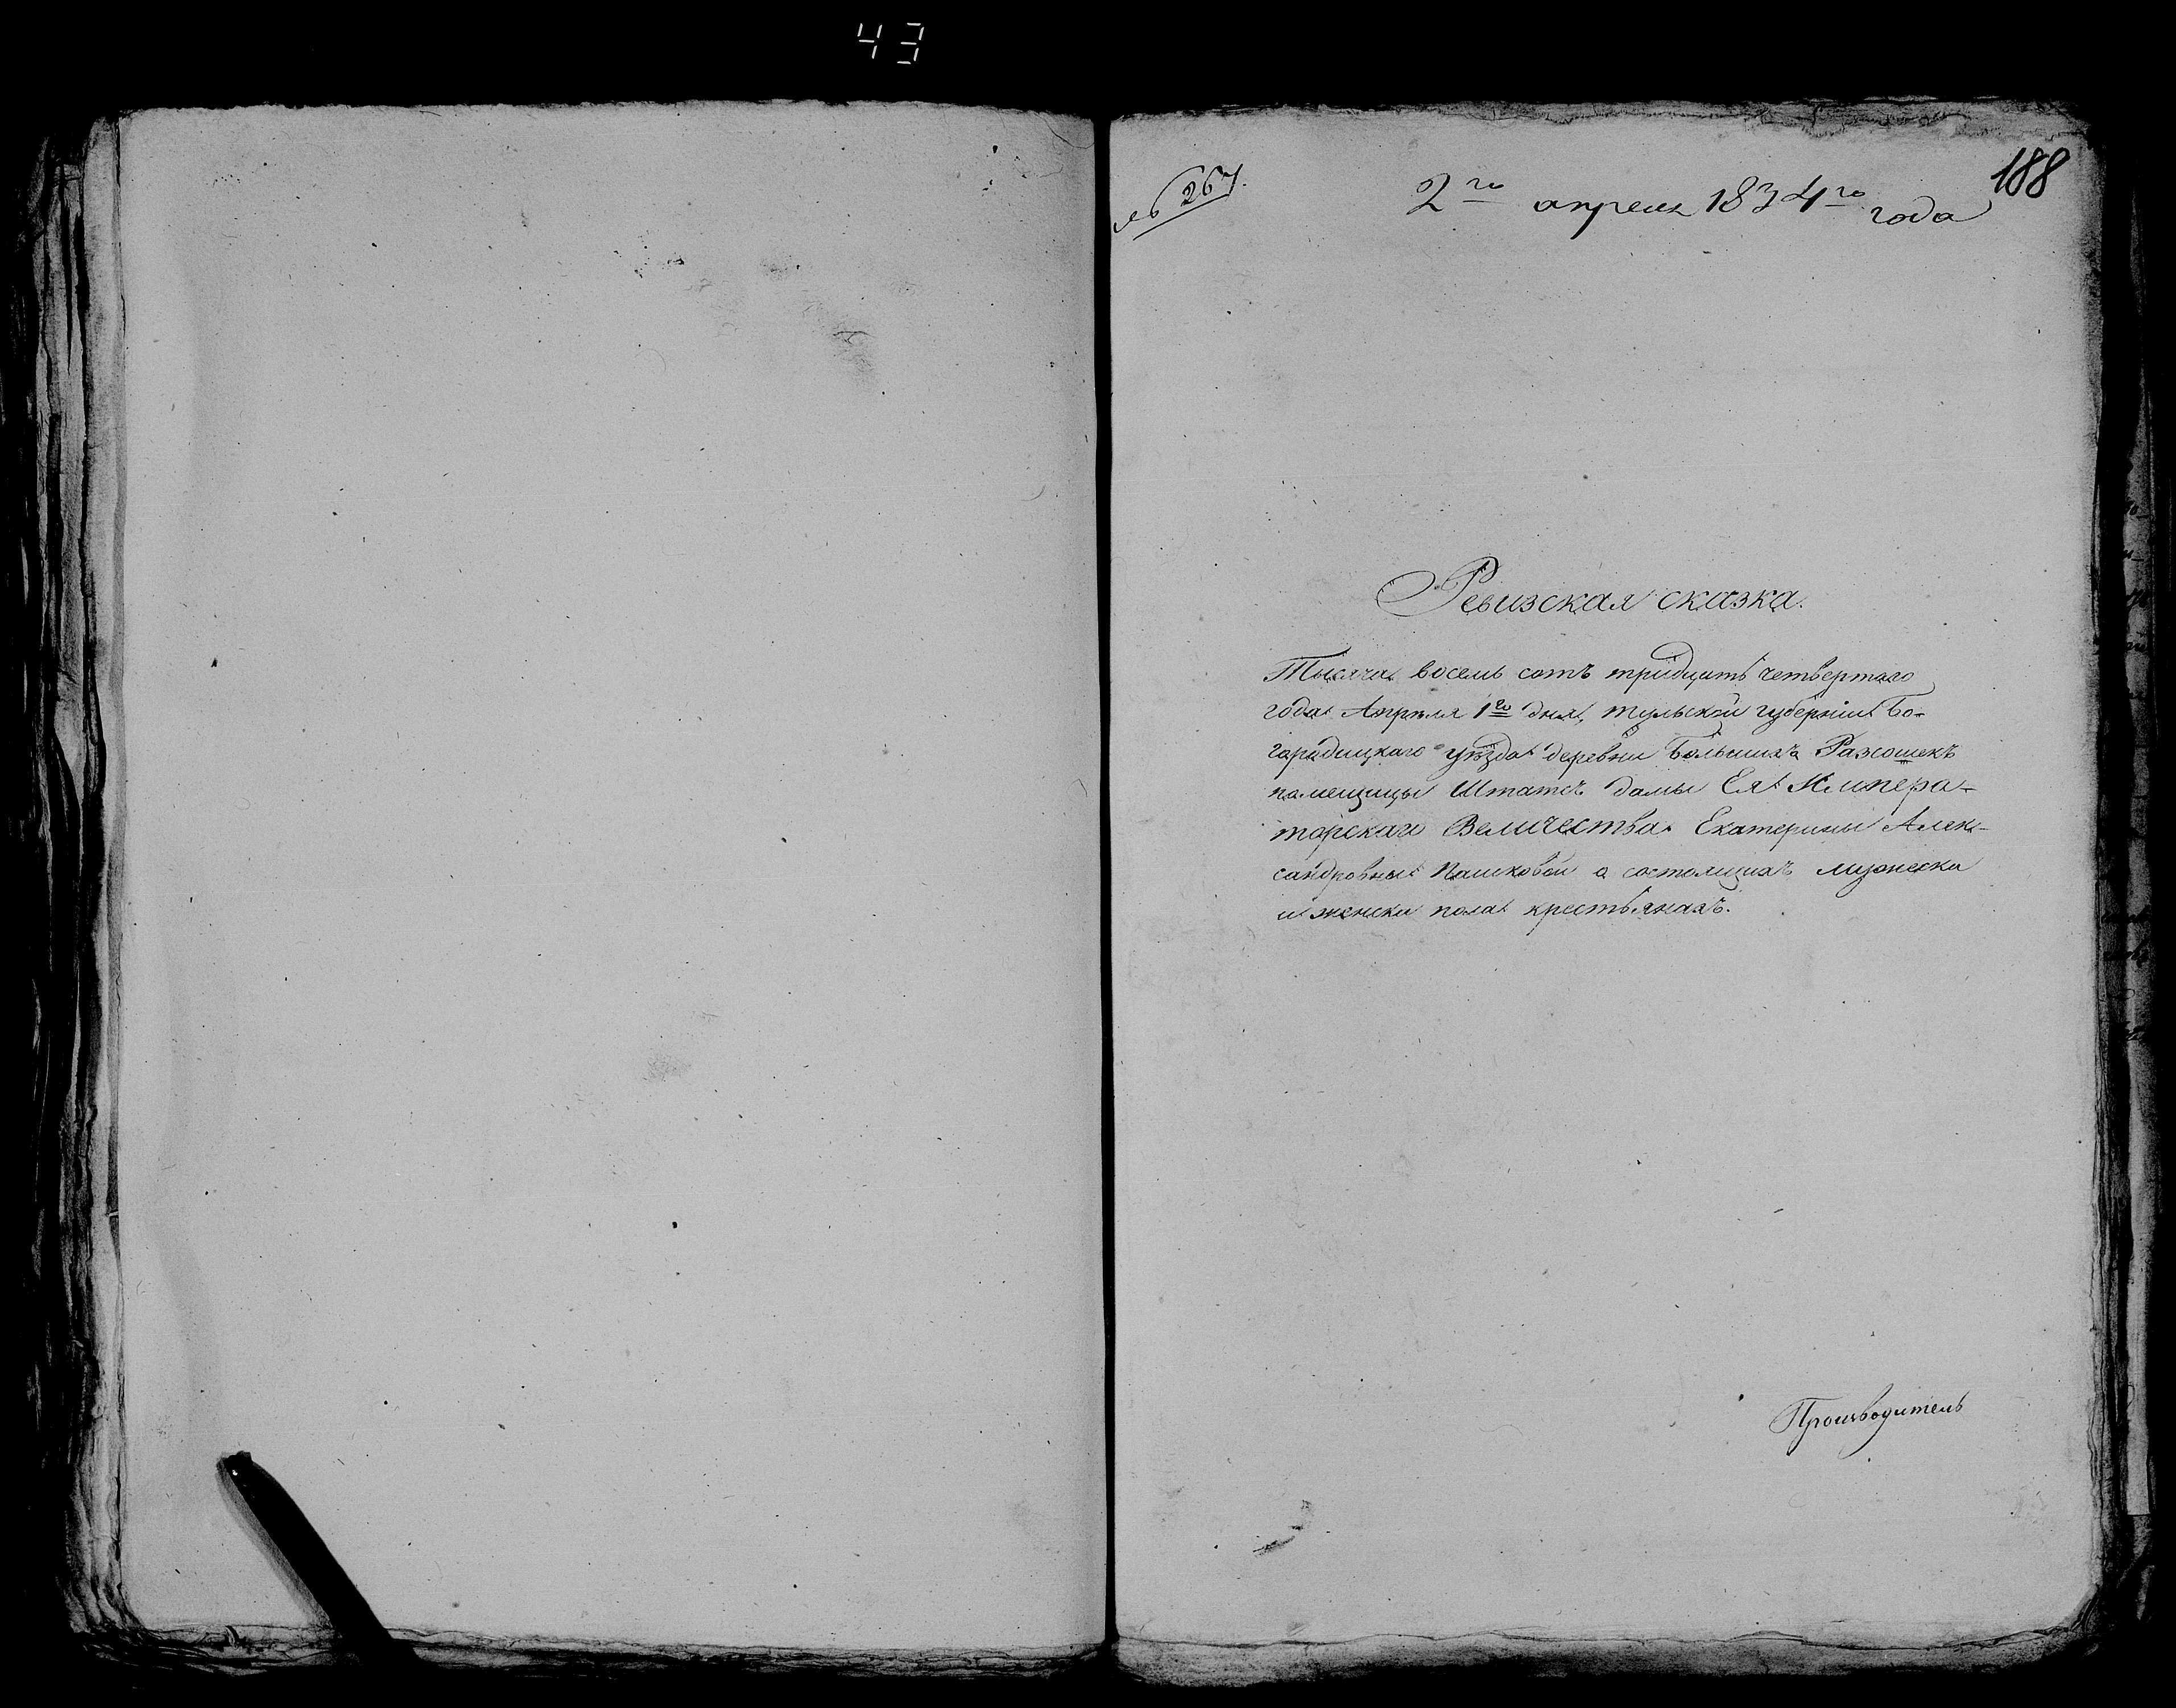 43
188
№ 267.
2го апреля 1834го года
Ревизская сказка.
Тысяча восемь сотъ тридцать четвертаго
года Апреля 1го дня, тульской губерніи Бо-
городицкаго уѣзда деревни Большихъ Разсошекъ
помещицы Штатсъ дамы Ея Импера-
торскаго Величества Екатерины Алек-
сандровны Пашковой о состоящихъ мужеска
и женска пола крестьянахъ.
Производитель